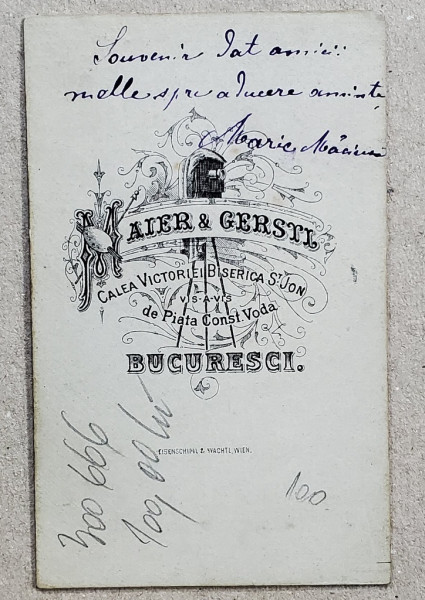 Souvenir dat amicii
melle spre aducere aminte
Marie
MAIER & GERSTL
CALEA VICTORIEI BISERICA St. JON
VIS-A-VIS
de Piata Const. Voda
BUCURESCI.
EISENSCHIML & WACHTL, WIEN.
300 666
100